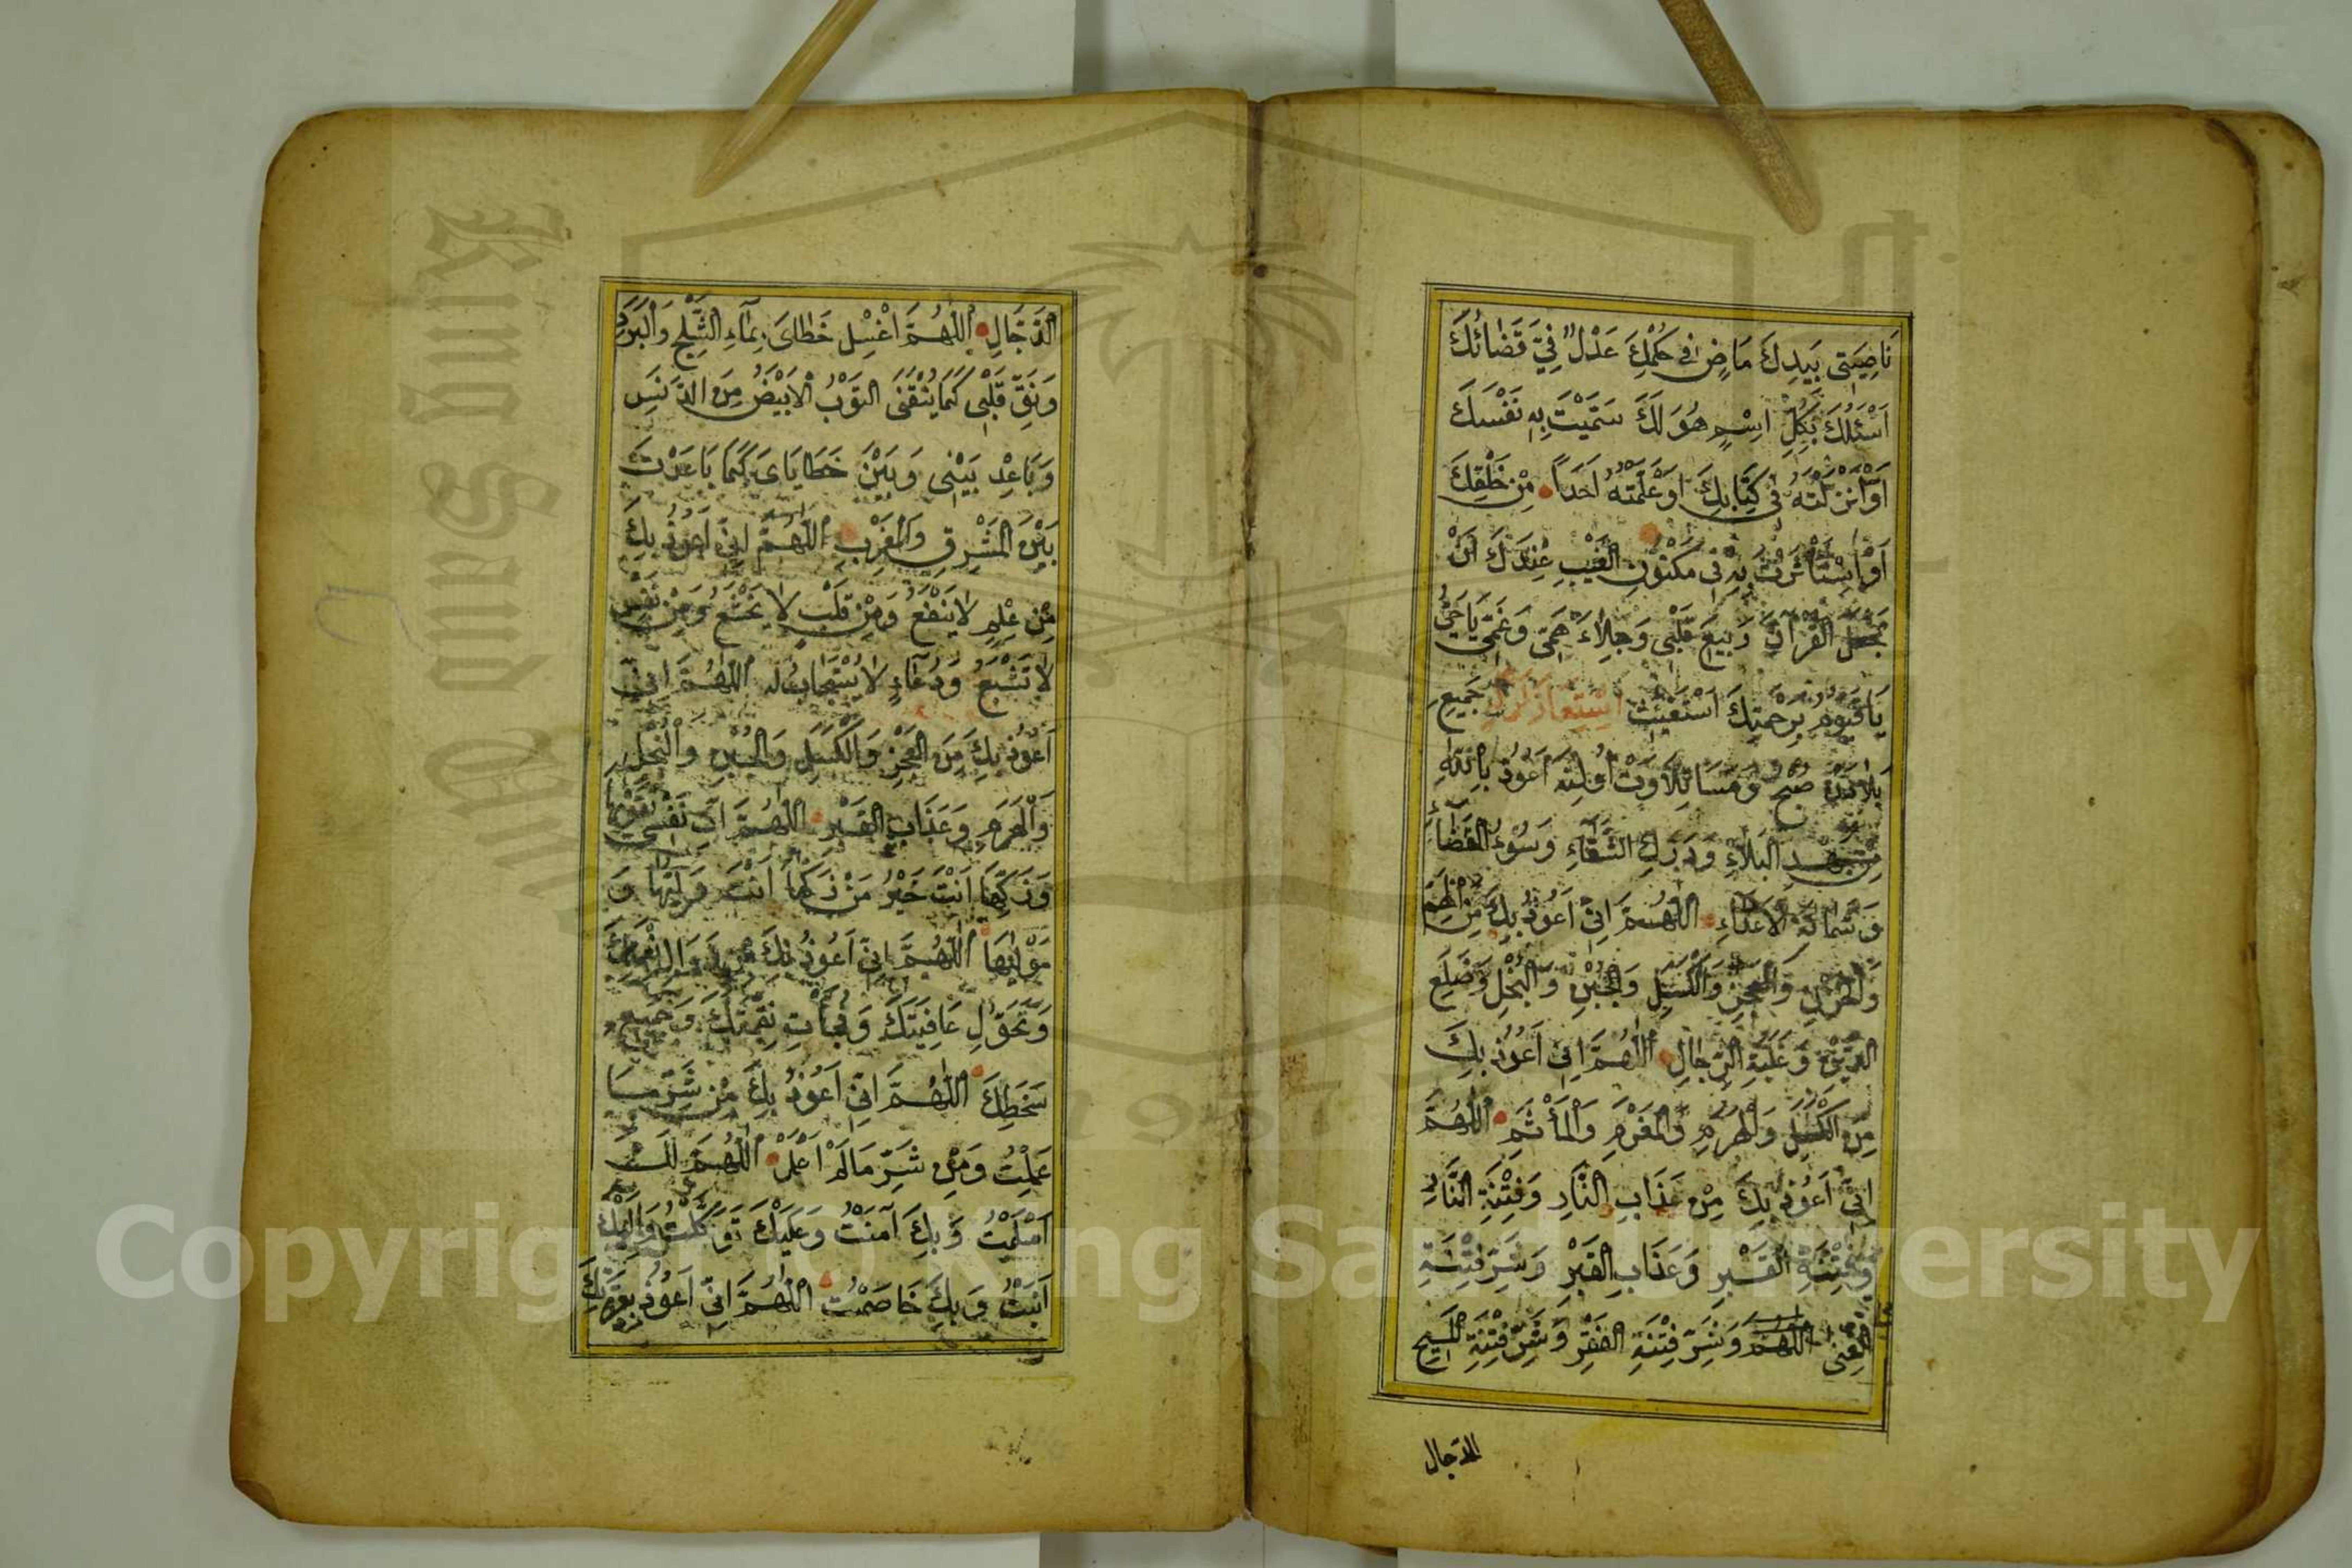 نَاصِيَتِى بِيَدِكَ مَاضٍ فِى حُكْمِكَ عَدْلٌ فِيَّ قَضَائُكَ
اَسْئَلُكَ بِكُلِّ اسْمٍ هُوَ لَكَ سَمَّيْتَ بِهِ نَفْسَكَ
اَوْ اَنْزَلْتَهُ فِى كِتَابِكَ اَوْ عَلَّمْتَهُ اَحَدًا مِنْ خَلْقِكَ
اَوِ اسْتَأْثَرْتَ بِهِ فِى مَكْنُونِ الْغَيْبِ عِنْدَكَ اَنْ
تَجْعَلَ الْقُرْآنَ رَبِيعَ قَلْبِى وَجِلَاءَ هَمِّى وَغَمِّى يَا حَيُّ
يَا قَيُّومُ بِرَحْمَتِكَ اَسْتَغِيْثُ جَمِيعِ
صُبْحْ وَمَسَا تِلَاوَتْ اُولِنَه اَعُوذُ بِاللّٰهِ
مِنْ جَهْدِ الْبَلَاءِ وَدَرَكِ الشَّقَاءِ وَسُوْءِ الْقَضَاءِ
وَشَمَاتَةِ الْاَعْدَاءِ اَللّٰهُمَّ اِنِّى اَعُوذُ بِكَ مِنَ الْهَمِّ
وَالْحُزْنِ وَالْعَجْزِ وَالْكَسَلِ وَالْجُبْنِ وَالْبُخْلِ وَضَلَعِ
الدَّيْنِ وَغَلَبَةِ الرِّجَالِ اَللّٰهُمَّ اِنِّى اَعُوذُ بِكَ
مِنَ الْكَسَلِ وَالْهَرَمِ وَالْمَغْرَمِ وَالْمَأْثَمِ اَللّٰهُمَّ
اِنِّى اَعُوذُ بِكَ مِنْ عَذَابِ النَّارِ وَفِتْنَةِ النَّارِ
وَفِتْنَةِ الْقَبْرِ وَعَذَابِ الْقَبْرِ وَشَرِّ فِتْنَةِ
الْغِنَى اَللّٰهُمَّ وَشَرِّ فِتْنَةِ الْفَقْرِ وَشَرِّ فِتْنَةِ الْمَسِيحِ
الدجال
الدَّجَّالِ اَللّٰهُمَّ اغْسِلْ خَطَاىَ بِمَاءِ الثَّلْجِ وَالْبَرَدِ
وَنَقِّ قَلْبِى كَمَا يُنَقَّى الثَّوْبُ الْاَبْيَضُ مِنَ الدَّنَسِ
وَبَاعِدْ بَيْنِى وَبَيْنَ خَطَايَاىَ كَمَا بَاعَدْتَ
بَيْنَ الْمَشْرِقِ وَالْمَغْرِبِ اَللّٰهُمَّ اِنِّى اَعُوذُ بِكَ
مِنْ عِلْمٍ لَا يَنْفَعُ وَمِنْ قَلْبٍ لَا يَخْشَعُ وَمِنْ نَفْسٍ
لَا تَشْبَعُ وَدُعَاءٍ لَا يُسْتَجَابُ لَهُ اَللّٰهُمَّ اِنِّى
اَعُوذُ بِكَ مِنَ الْعَجْزِ وَالْكَسَلِ وَالْجُبْنِ وَالْبُخْلِ
وَالْهَرَمِ وَعَذَابِ الْقَبْرِ اَللّٰهُمَّ اٰتِ نَفْسِى تَقْوٰيهَا
وَزَكِّهَا اَنْتَ خَيْرُ مَنْ زَكّٰهَا اَنْتَ وَلِيُّهَا وَ
مَوْلٰيهَا اَللّٰهُمَّ اِنِّى اَعُوذُ بِكَ مِنْ زَوَالِ نِعْمَتِكَ
وَتَحَوُّلِ عَافِيَتِكَ وَفُجْأَتِ نِقْمَتِكَ وَجَمِيعِ
سَخَطِكَ اَللّٰهُمَّ اِنِّى اَعُوذُ بِكَ مِنْ شَرِّ مَا
عَمِلْتُ وَمِنْ شَرِّ مَا لَمْ اَعْمَلْ اَللّٰهُمَّ لَكَ
اَسْلَمْتُ وَبِكَ آمَنْتُ وَعَلَيْكَ تَوَكَّلْتُ وَاِلَيْكَ
اَنَبْتُ وَبِكَ خَاصَمْتُ اَللّٰهُمَّ اِنِّى اَعُوذُ بِعِزَّتِكَ
King Saud
1957
Copyright © King Saud University